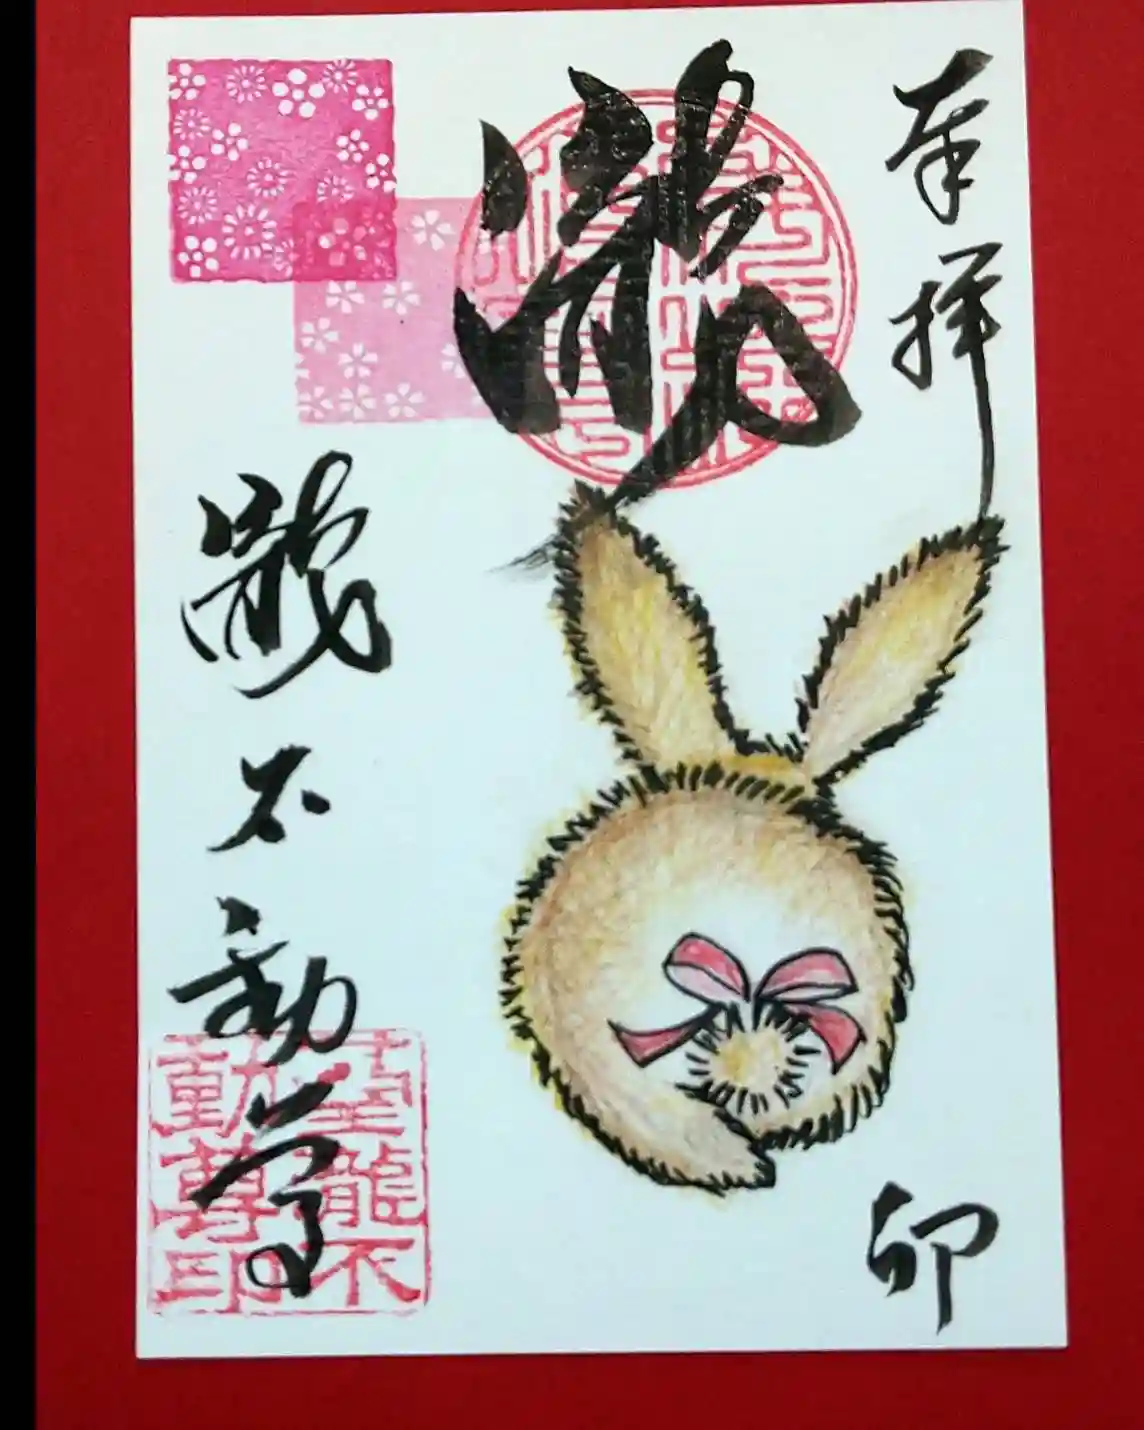 奉拝
瀧
卯
瀧不動尊
龍不
動尊印